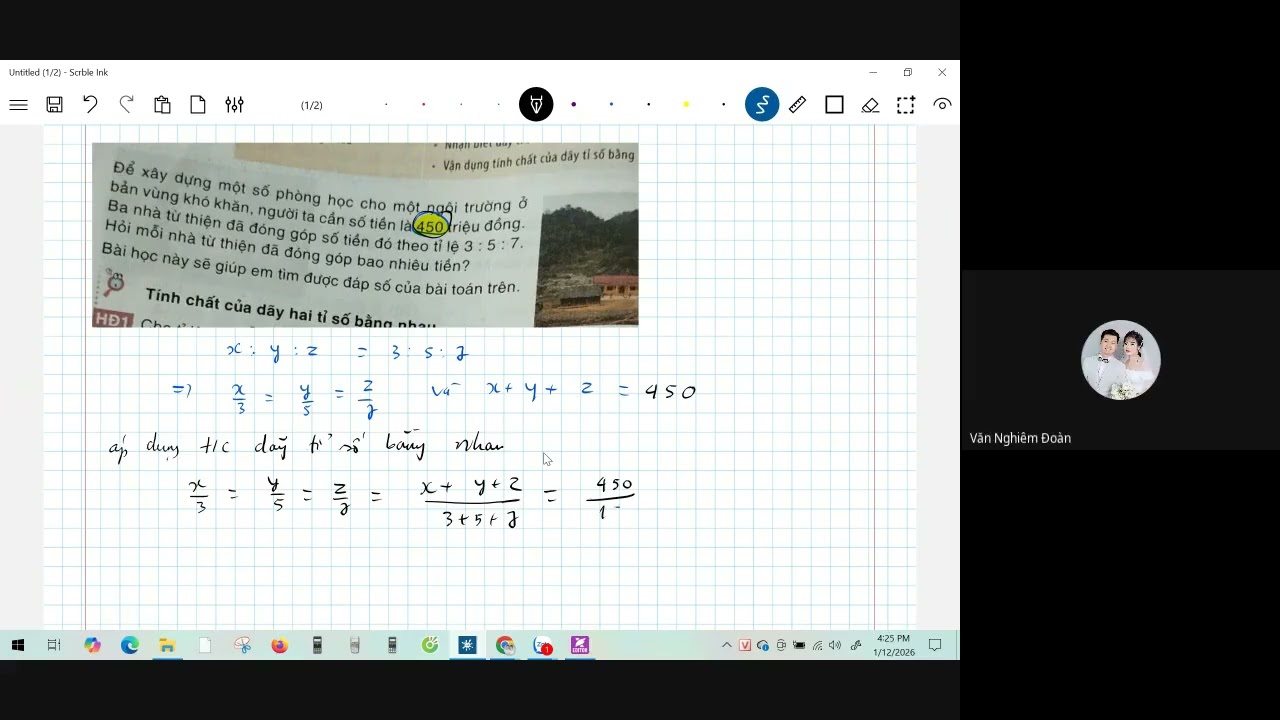 Untitled (1/2) - Scrble Ink
(1/2)
Nhận biết dãy
• Vận dụng tính chất của dãy tỉ số bằng
Để xây dựng một số phòng học cho một ngôi trường ở
bản vùng khó khăn, người ta cần số tiền là 450 triệu đồng.
Ba nhà từ thiện đã đóng góp số tiền đó theo tỉ lệ 3 : 5 : 7.
Hỏi mỗi nhà từ thiện đã đóng góp bao nhiêu tiền?
Bài học này sẽ giúp em tìm được đáp số của bài toán trên.
Tính chất của dãy hai tỉ số bằng nhau
HĐ1
x : y : z = 3 : 5 : 7
=> x/3 = y/5 = z/7 và x + y + z = 450
áp dụng t/c dãy tỉ số bằng nhau
x/3 = y/5 = z/7 = (x + y + z)/(3 + 5 + 7) = 450/1
Văn Nghiêm Đoàn
4:25 PM
1/12/2026